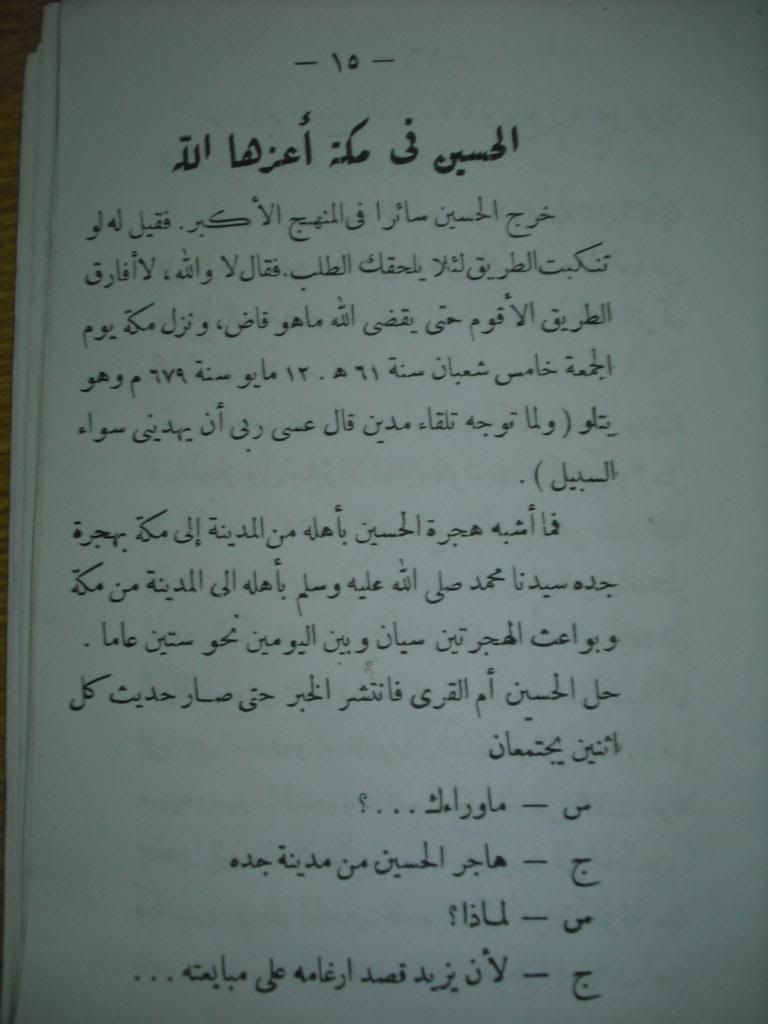 — ١٥ —
الحسين فى مكة أعزها الله
خرج الحسين سائرا فى المنهج الأكبر. فقيل له لو
تنكبت الطريق لئلا يلحقك الطلب. فقال لا والله، لا أفارق
الطريق الأقوم حتى يقضى الله ماهو قاض، ونزل مكة يوم
الجمعة خامس شعبان سنة ٦١ ه . ١٢ مايو سنة ٦٧٩ م وهو
يتلو ( ولما توجه تلقاء مدين قال عسى ربى أن يهدينى سواء
السبيل ) .
فما أشبه هجرة الحسين بأهله من المدينة إلى مكة بهجرة
جده سيدنا محمد صلى الله عليه وسلم بأهله الى المدينة من مكة
وبواعث الهجرتين سيان وبين اليومين نحو ستين عاما .
حل الحسين أم القرى فانتشر الخبر حتى صار حديث كل
اثنين يجتمعان
س — ماوراءك . . . ؟
ج — هاجر الحسين من مدينة جده
س — لماذا؟
ج — لأن يزيد قصد ارغامه على مبايعته . . .